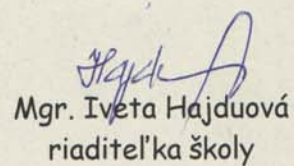 Mgr. Iveta Hajduová
riaditeľka školy